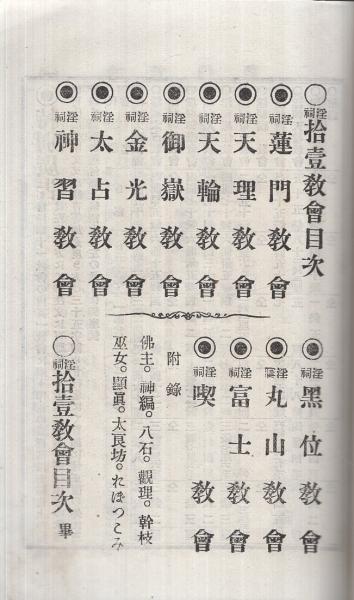 ◯淫祠拾壹教會目次
◉淫祠蓮門教會
◉淫祠天理教會
◉淫祠天輪教會
◉淫祠御嶽教會
◉淫祠金光教會
◉淫祠太占教會
◉淫祠神習教會
◉淫祠黑位教會
◉淫祠丸山教會
◉淫祠富士教會
◉淫祠喫教會
附錄
佛主。神編。八石。觀理。幹枝
巫女。顯眞。太良坊。れぽつこみ
◯淫祠拾壹教會目次畢